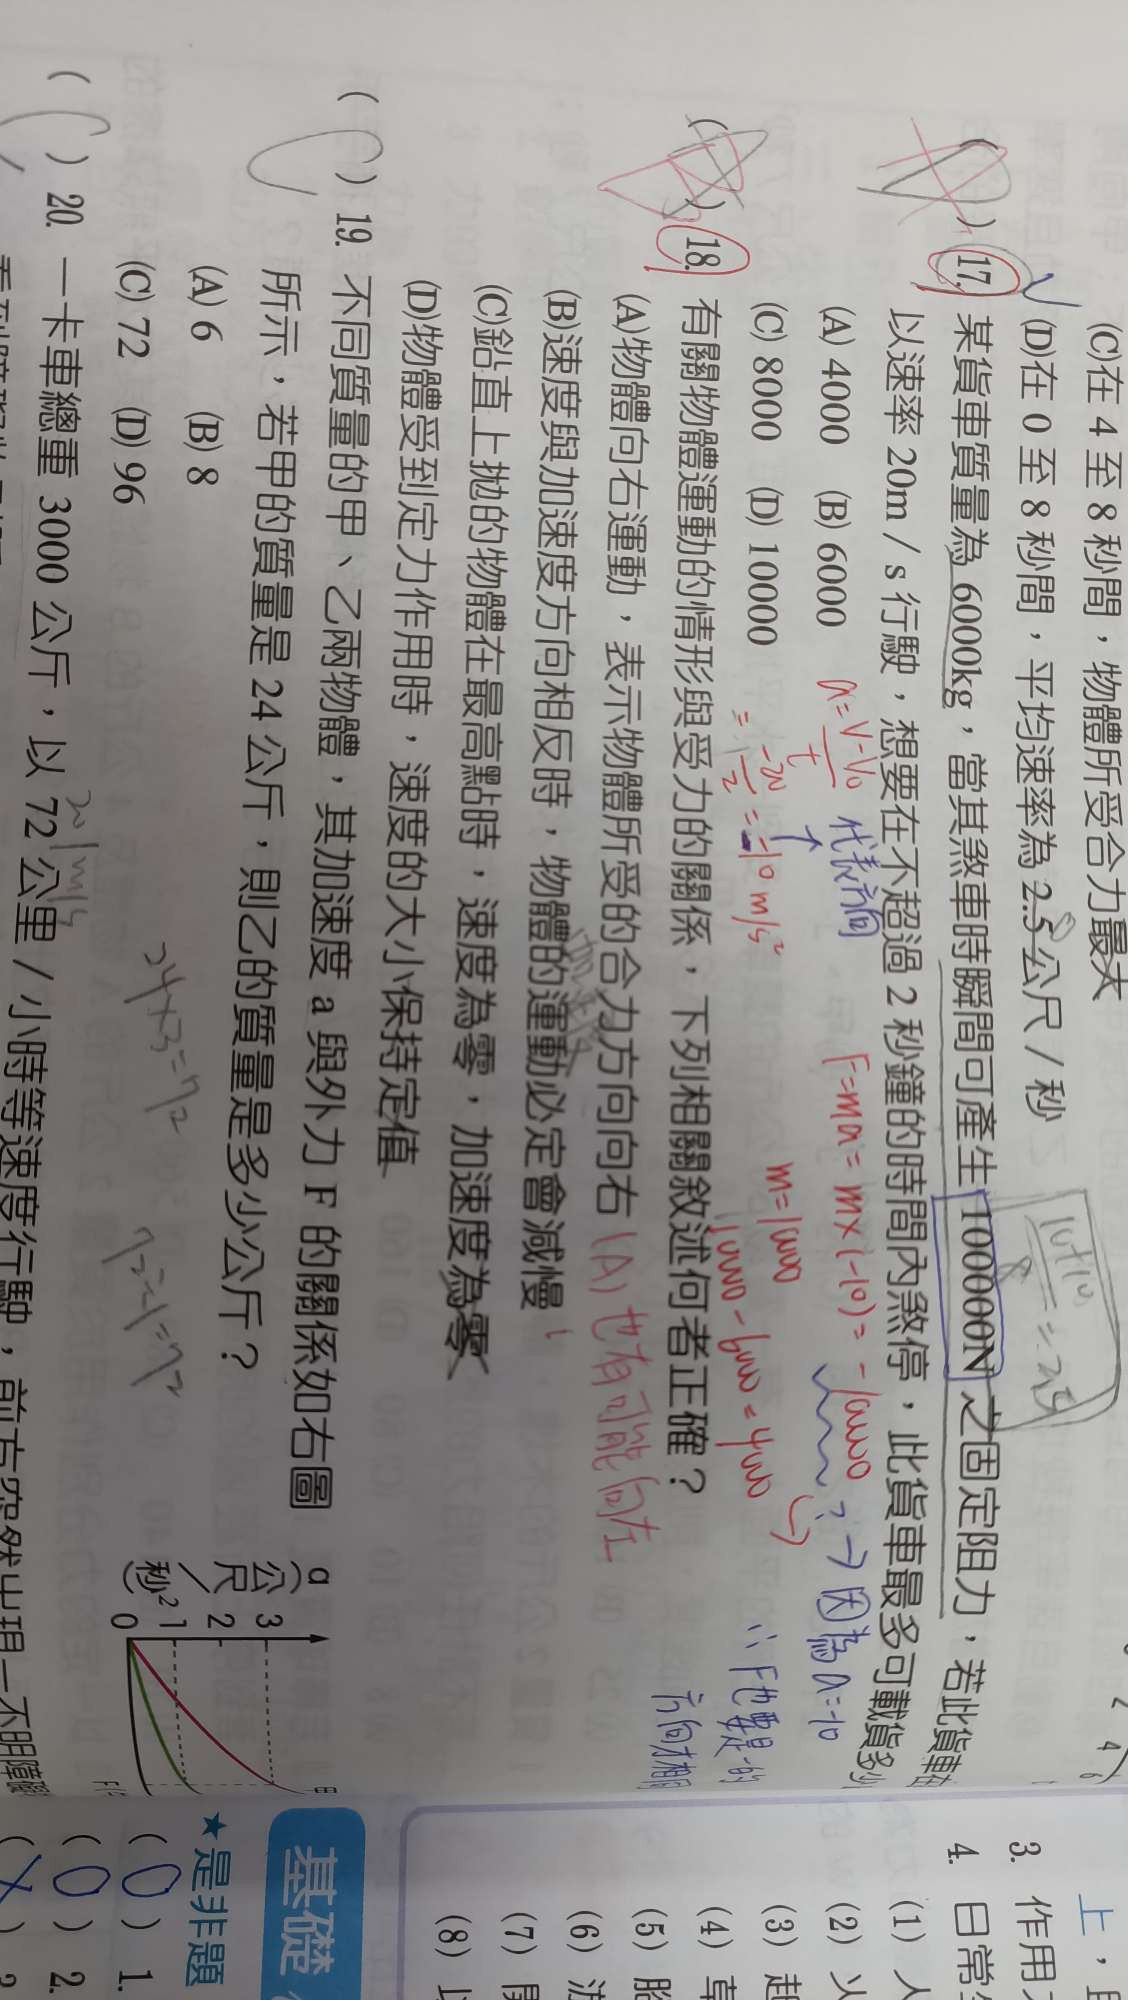 (C)在 4 至 8 秒間，物體所受合力最大
(D)在 0 至 8 秒間，平均速率為 2.5 公尺/秒
( ) 17. 某貨車質量為 6000kg，當其煞車時瞬間可產生 100000N 之固定阻力，若此貨車在
以速率 20m/s 行駛，想要在不超過 2 秒鐘的時間內煞停，此貨車最多可載貨多少
(A) 4000 (B) 6000
(C) 8000 (D) 10000
a=V-V₀/t 代表方向
=-20/2=-10 m/s²
F=ma=m×(-10)=-100000 ? → 因為a=-10
m=10000
10000-6000=4000
∴F也要是
方向
( ) 18. 有關物體運動的情形與受力的關係，下列相關敘述何者正確？
(A)物體向右運動，表示物體所受的合力方向向右 (A)也有可能向左
(B)速度與加速度方向相反時，物體的運動必定會減慢
(C)鉛直上拋的物體在最高點時，速度為零，加速度為零
(D)物體受到定力作用時，速度的大小保持定值
(C) 19. 不同質量的甲、乙兩物體，其加速度 a 與外力 F 的關係如右圖
所示，若甲的質量是 24 公斤，則乙的質量是多少公斤？
(A) 6 (B) 8
(C) 72 (D) 96
24×3=72
72÷1=72
a
(公尺/秒²)
3
2
1
0
甲
20 m/s
(C) 20. 一卡車總重 3000 公斤，以 72 公里/小時等速度行駛，前方突然出現一不明障礙
3. 作用
4. 日常
(1) 人
(2)
(3) 起
(4)
(5) 胎
(6) 游
(7)
(8) 以
基礎
★是非題
(O) 1.
(O) 2.
(X) 3